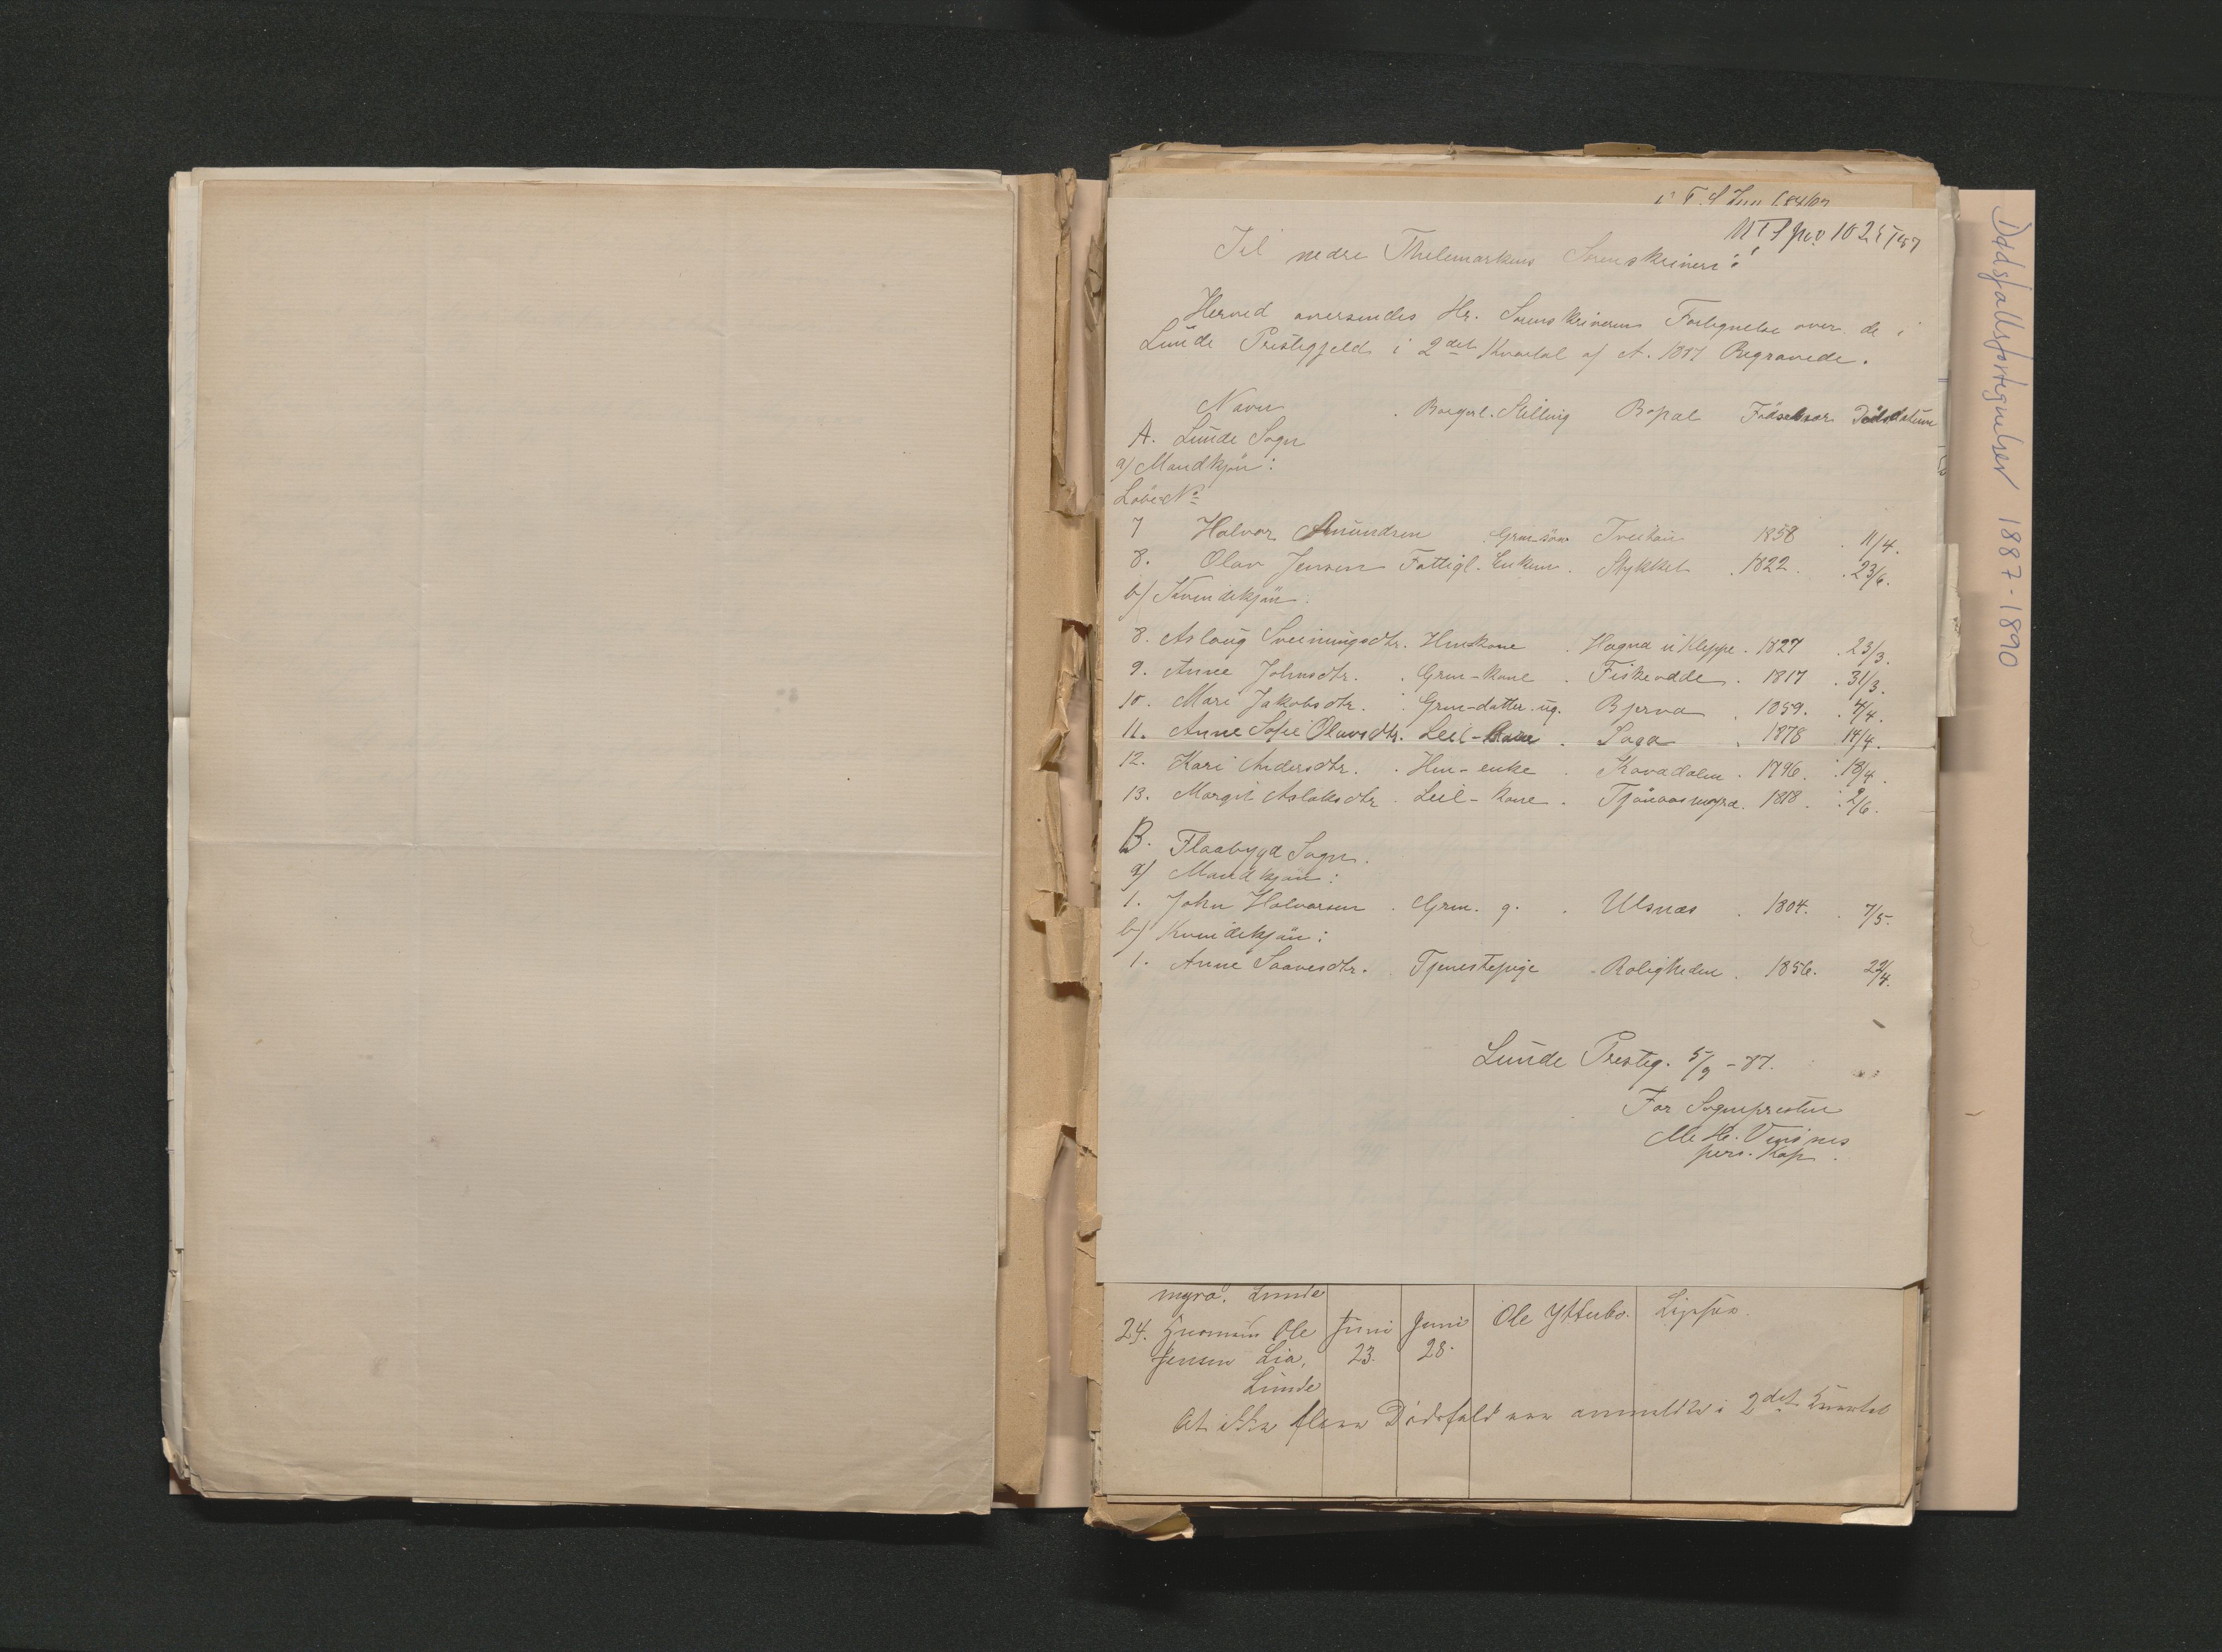 NTS Jno 1025/87
Til nedre Thelemarkens Sorenskriveri!
Herved oversendes Hr. Sorenskriveren Fortegnelse over de i
Lunde Prestegjeld i 2det Kvartal af A. 1887 Begravede.
Navn Borgerl. Stilling Bopæl Fødselsaar Dødsdatum
A. Lunde Sogn
a) Mandkjøn:
Løbe No
7 Halvor Amundsen Grm-søn Tveitan 1858 11/4.
8. Olav Jensen Fattigl. Enkem. Stykket 1822. 23/6.
b) Kvindekjøn:
8. Aslaug Sveinungsdtr. Hmskone Hagna u Kleppe. 1827 23/3.
9. Anne Johnsdtr. Grm-kone Fiskeodde. 1817 31/3.
10. Mari Jakobsdtr. Grm-datter. ug. Bjerva 1859. 4/4.
11. Anne Sofie Olavsdtr. Leil- Saga 1878 14/4.
12. Kari Andersdtr. Hm-enke Kovadalen. 1796. 18/4.
13. Margit Aslaksdtr Leil-kone. 1818. 2/6.
B. Flaabygd Sogn.
a) Mandkjøn:
1. John Halvorsen Grm. g. Ulsnæs 1804. 7/5.
b) Kvindekjøn:
1. Anne Saavesdtr. Tjenestepige Roligheden. 1856. 22/4.
Lunde Presteg. 5/9-87.
For Sognepresten
pers. Kap.
myra. Lunde
24. Ole Juni Juni Ole Yttrebø.
Jensen Lia, 23. 28.
Lunde
At ikke flere Dødsfald ere anmeldte i 2det Kvartal
Dødsfallsfortegnelser 1887-1890